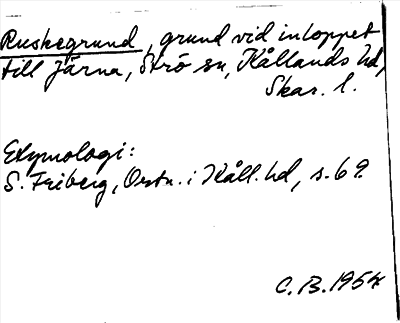 Ruskegrund, grund vid inloppet
till Järna, Strö sn, Kållands hd,
Skar. l.
Etymologi:
S. Friberg, Ortn. i Kåll. hd, s. 69.
C.B. 1954